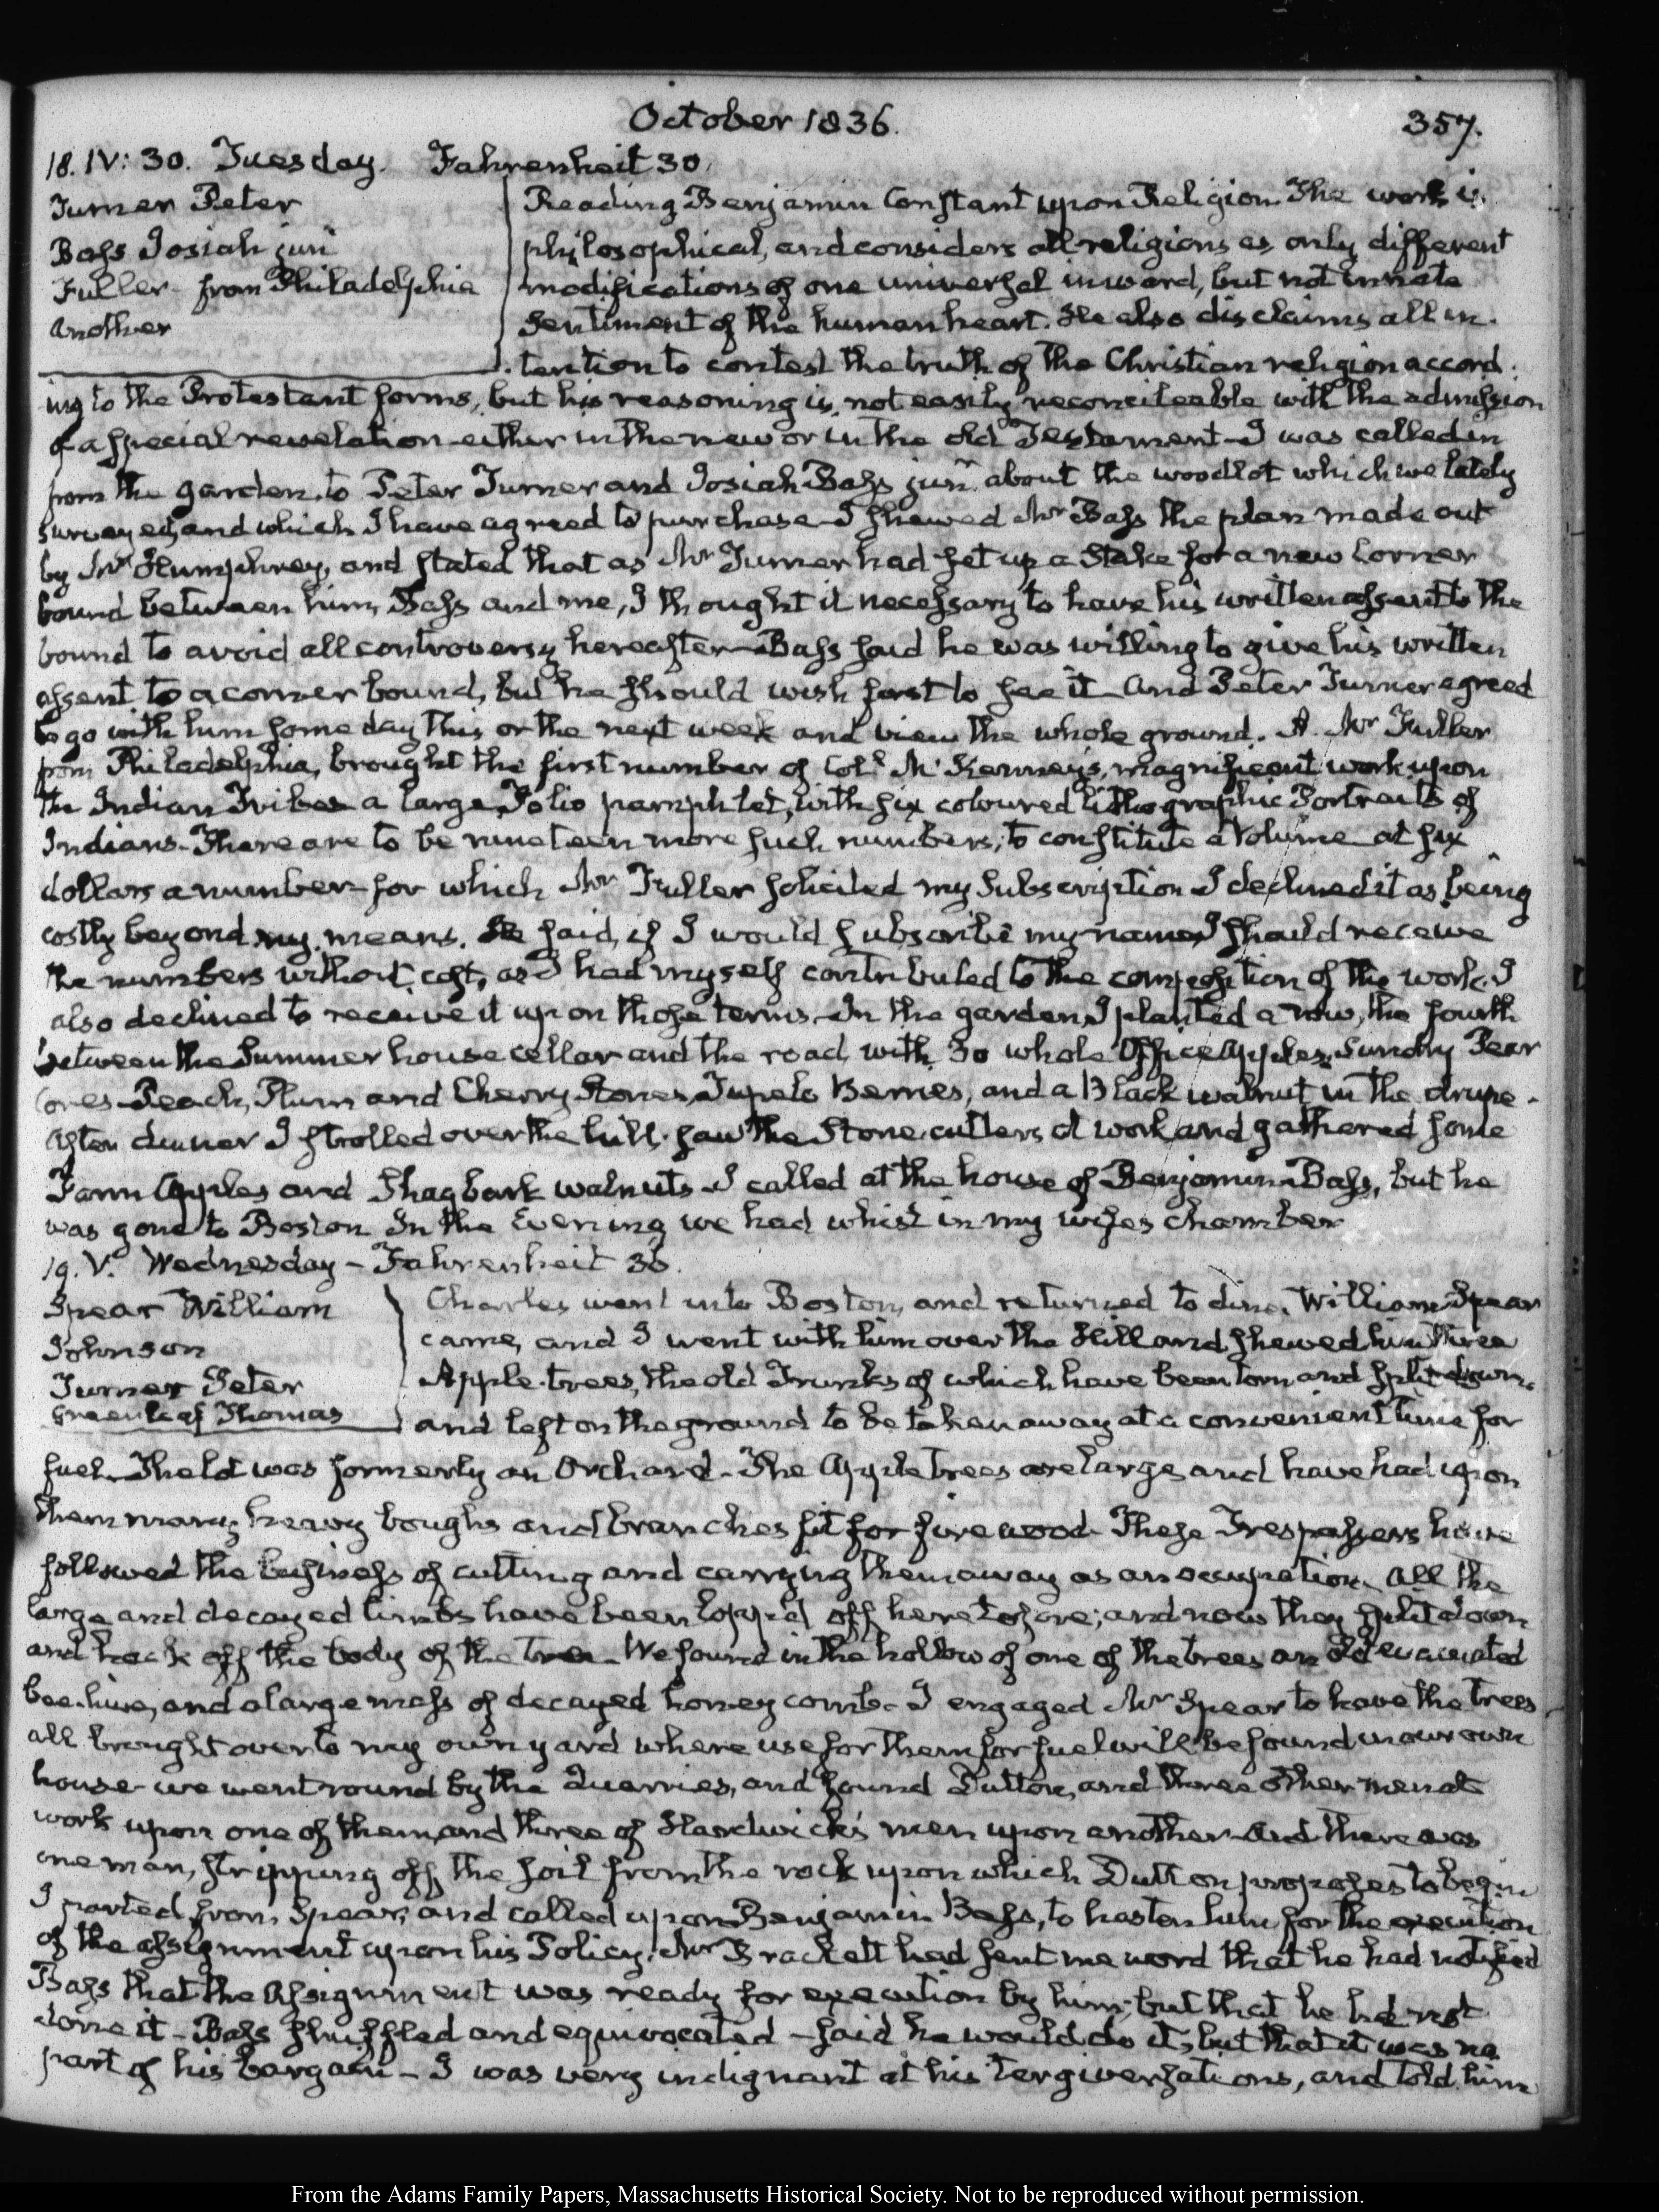 October 1836.
357.
18. IV: 30. Tuesday. Fahrenheit 30.
Turner Peter
Bass Josiah junr
Fuller from Philadelphia
Another
Reading Benjamin Constant upon Religion. The work is
philosophical, and considers all religions as only different
modifications of one universal inward, but not innate
Sentiment of the human heart. He also disclaims all in-
tention to contest the truth of the Christian religion accord-
ing to the Protestant forms, but his reasoning is not easily reconcileable with the admission
of a special revelation either in the new or in the old Testament—I was called in
from the garden to Peter Turner and Josiah Bass junr about the woodlot which we lately
surveyed, and which I have agreed to purchase—I shewed Mr Bass the plan made out
by Mr Humphrey, and stated that as Mr Turner had set up a Stake for a new Corner
bound between him, Bass and me, I thought it necessary to have his written assent to the
bound to avoid all controversy hereafter—Bass said he was willing to give his written
assent to a corner bound, but he should wish first to see it—and Peter Turner agreed
to go with him some day this or the next week and view the whole ground. A Mr Fuller
from Philadelphia, brought the first number of Coll McKenney's, magnificent work upon
the Indian Tribes a large Folio pamphlet, with six coloured lithographic Portraits of
Indians—There are to be nineteen more such numbers, to constitute a Volume—at six
dollars a number—for which Mr Fuller solicited my Subscription I declined it as being
costly beyond my means. He said, if I would subscribe my name, I should receive
the numbers without cost, as I had myself contributed to the composition of the work. I
also declined to receive it upon those terms—In the garden, I planted a row, the fourth
between the Summer house cellar and the road, with 30 whole Office Apples, Sundry Pear
Cores—Peach, Plum and Cherry Stones, Tupelo Berries, and a Black walnut in the drupe—
After dinner I strolled over the hill, saw the Stone cutters at work, and gathered some
Farm Apples and Shagbark walnuts—I called at the house of Benjamin Bass, but he
was gone to Boston In the Evening we had whist in my wife's chamber
19. V. Wednesday—Fahrenheit 36.
Spear William
Johnson
Turner Peter
Greenleaf Thomas
Charles went into Boston, and returned to dine. William Spear
came, and I went with him over the Hill and shewed him three
Apple-trees, the old Trunks of which have been torn and split down,
and left on the ground to be taken away at a convenient time for
fuel. The lot was formerly an Orchard—The Apple trees are large and have had upon
them many heavy boughs and branches fit for fire wood These Trespassers have
followed the business of cutting and carrying them away as an occupation. All the
large and decayed limbs have been lopp'd off heretofore; and now they split down
and hack off the body of the tree—We found in the hollow of one of the trees an old evacuated
bee-hive, and a large mass of decayed honey comb—I engaged Mr Spear to have the trees
all brought over to my own yard where use for them for fuel will be found in our own
house—we went round by the Quarries, and found Dutton, and three other men at
work upon one of them, and three of Hardwick's men upon another—And there was
one man, stripping off the soil from the rock upon which Dutton proposes to begin
I parted from Spear, and called upon Benjamin Bass, to hasten him for the execution
of the assignment upon his Policy. Mr Brackett had sent me word that he had notified
Bass that the Assignment was ready for execution by him; but that he had not
done it—Bass shuffled and equivocated—said he would do it, but that it was no
part of his bargain—I was very indignant at his tergiversations, and told him
From the Adams Family Papers, Massachusetts Historical Society. Not to be reproduced without permission.